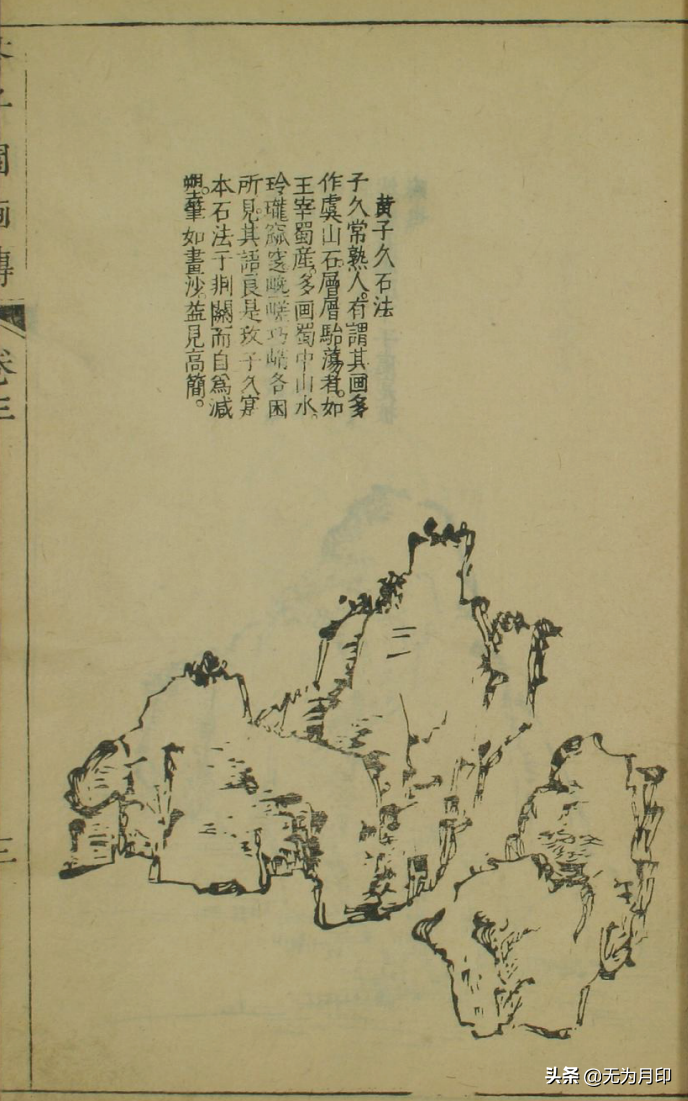 黃子久石法
子久常熟人。有謂其画多
作虞山石。層層駘蕩者。如
王宰蜀産。多画蜀中山水。
玲瓏窳窆巉嵯巧峭各因
所見。其語良是攷子久寔
本石法于荆關而自爲減
塑。筆如畫沙。益見高簡。
子園画傳
卷三
三
头条 @无为月印